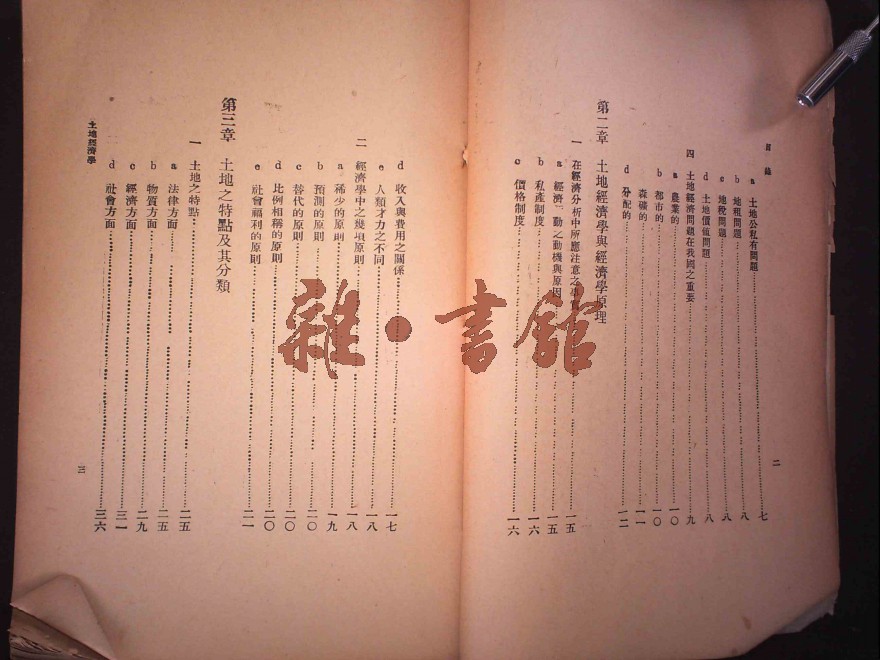 目錄
二
a 土地公私有問題 七
b 地租問題 八
c 地稅問題 八
d 土地價值問題 八
四 土地經濟問題在我國之重要 九
a 農業的 一〇
b 都市的 一〇
森礦的 一一
d 分配的 一二
第二章 土地經濟學與經濟學原理
一 在經濟分析中所應注意之 一五
a 經濟 動之動機與原因 一五
b 私產制度 一六
c 價格制度 一六
d 收入與費用之關係 一七
e 人類才力之不同 一八
二 經濟學中之幾項原則 一八
a 稀少的原則 一九
b 預測的原則 二〇
c 替代的原則 二〇
d 比例相稱的原則 二〇
e 社會福利的原則 二一
第三章 土地之特點及其分類
一 土地之特點 二五
a 法律方面 二五
b 物質方面 二九
c 經濟方面 三一
d 社會方面 三六
土地經濟學
三
雜·書館